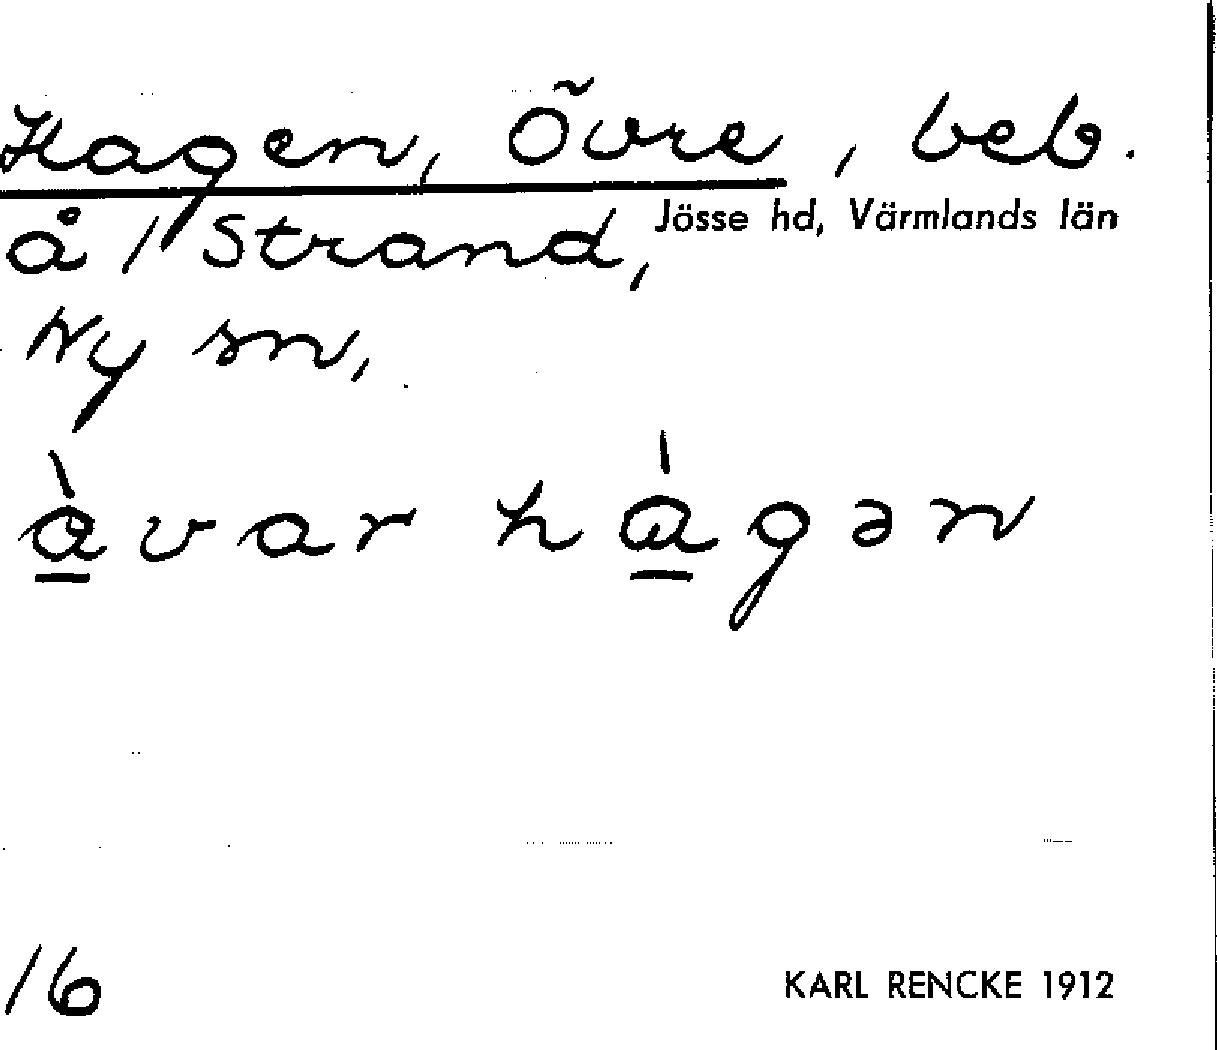 Hagen, Övre, beb.
Jösse hd, Värmlands län
å /Strand,
Ny sn,
à̱var hà̱gən
16
KARL RENCKE 1912